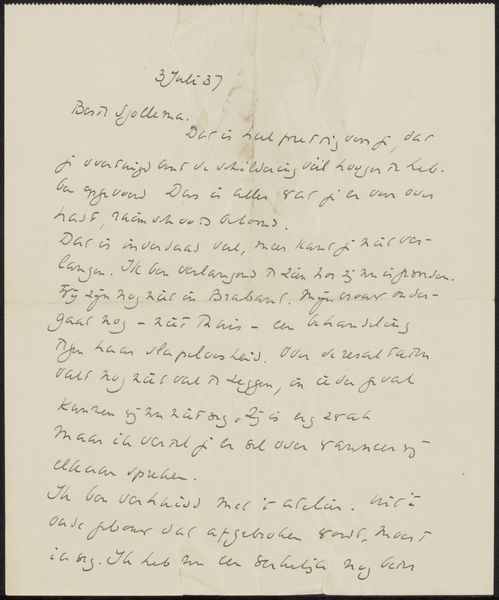 3 Juli 37
Beste Sjollema.
Dat is heel prettig voor je, dat
je overtuigd bent de schildering veel hooger te heb-
ben opgevoerd. Dan is alles wat je er voor over
hadt, ruimschoots beloond.
Dat is inderdaad veel, meer kunt je niet ver-
langen. Ik ben verlangend te zien hoe zij nu is geworden.
Wij zijn nog niet in Brabant. Mijn vrouw onder-
gaat nog – niet thuis – een behandeling
tegen haar slapeloosheid. Over de resultaten
valt nog niet veel te zeggen, in ieder geval
kunnen wij nu niet weg. Zij is erg zwak
maar ik vertel je er wel over wanneer wij
elkaar spreken.
Ik ben verhuisd met 't atelier. Uit 't
oude gebouw dat afgebroken wordt, moest
ik weg. Ik heb nu een werkelijk nog beter